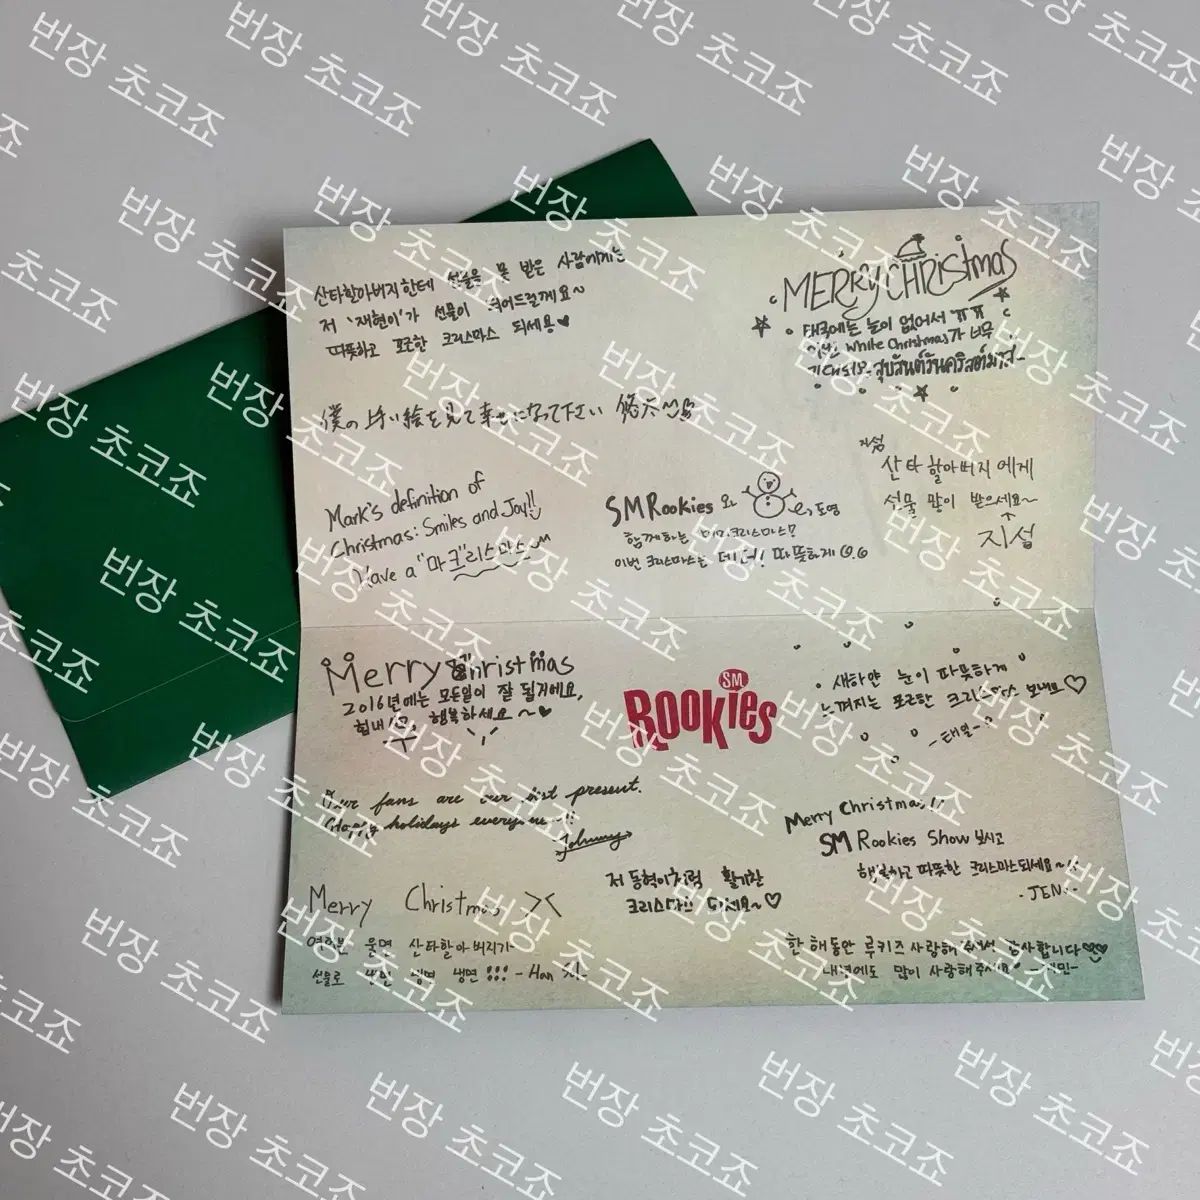 산타할아버지한테 선물을 못 받은 사람에게는
저 '재현이'가 선물이 되어드릴께요~
따뜻하고 포근한 크리스마스 되세용♥
MERRY CHRISTMAS
태국에는 눈이 없어서 ㅠㅠ
이번 White Christmas가 너무
สุขสันต์วันคริสต์มาส-
僕の 絵を見て幸せになって下さい 悠太
지성
산타할아버지에게
선물 많이 받으세요~
지성
Mark's definition of
Christmas: Smiles and Joy!!
Have a "마크"리스마스
SMRookies 와 도영
함께하는 메리크리스마스!
이번 크리스마스는 따뜻하게
Merry Christmas
2016년에는 모든일이 잘 될거에요,
힘내 행복하세요~♥
SM
ROOKIES
새하얀 눈이 따뜻하게
느껴지는 포근한 크리스마스 보내요♡
-태일-
Our fans are our best present.
Happy holidays everyone!!
Johnny
Merry Christmas!!
SM Rookies Show 보시고
행복하고 따뜻한 크리스마스되세요~
-JENO-
저 동혁이처럼 활기찬
크리스마스 되세요~♡
Merry Christmas ><
여러분 울면 산타할아버지가
선물로 냉면 냉면 냉면 !!! -Han
한 해동안 루키즈 사랑해주셔서 감사합니다
내년에도 많이 사랑해주세요 -재민-
번장 초코죠